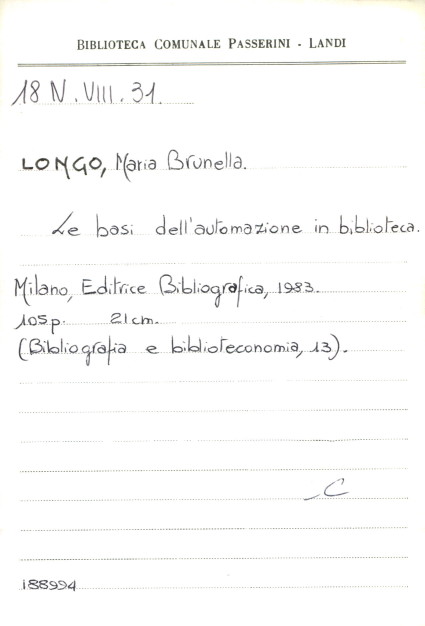 BIBLIOTECA COMUNALE PASSERINI - LANDI
18 N. VIII. 31.
LONGO, Maria Brunella.
Le basi dell'automazione in biblioteca.
Milano, Editrice Bibliografica, 1983.
105 p. 21 cm.
(Bibliografia e biblioteconomia, 13).
C
188994